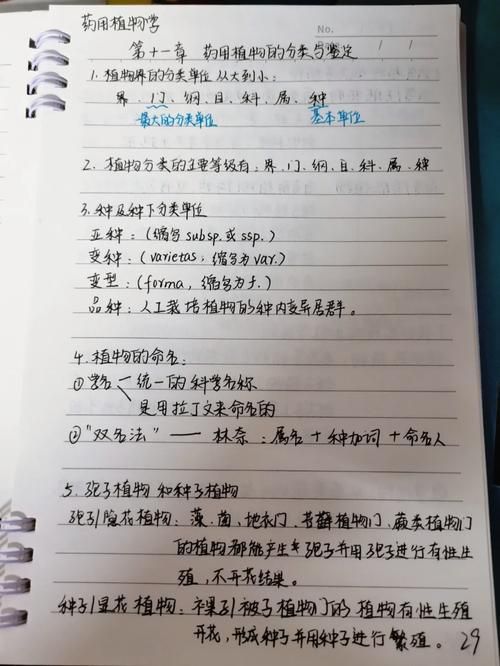 药用植物学
No.
第十一章 药用植物的分类与鉴定
1. 植物界的分类单位从大到小:
界、门、纲、目、科、属、种
最大的分类单位 基本单位
2. 植物分类的主要等级有:界、门、纲、目、科、属、种
3. 种及种下分类单位
亚种:(缩写subsp.或ssp.)
变种:(varietas,缩写为var.)
变型:(forma,缩写为f.)
品种:人工栽培植物的种内变异居群。
4. 植物的命名:
①学名 统一的科学名称
是用拉丁文来命名的
②"双名法"——林奈:属名+种加词+命名人
5. 孢子植物和种子植物
孢子/隐花植物:藻、菌、地衣门、苔藓植物门、蕨类植物门
的植物都能产生孢子并用孢子进行有性生
殖,不开花结果。
种子/显花植物:裸子/被子植物门的植物有性生殖
开花,形成种子并用种子进行繁殖。 29